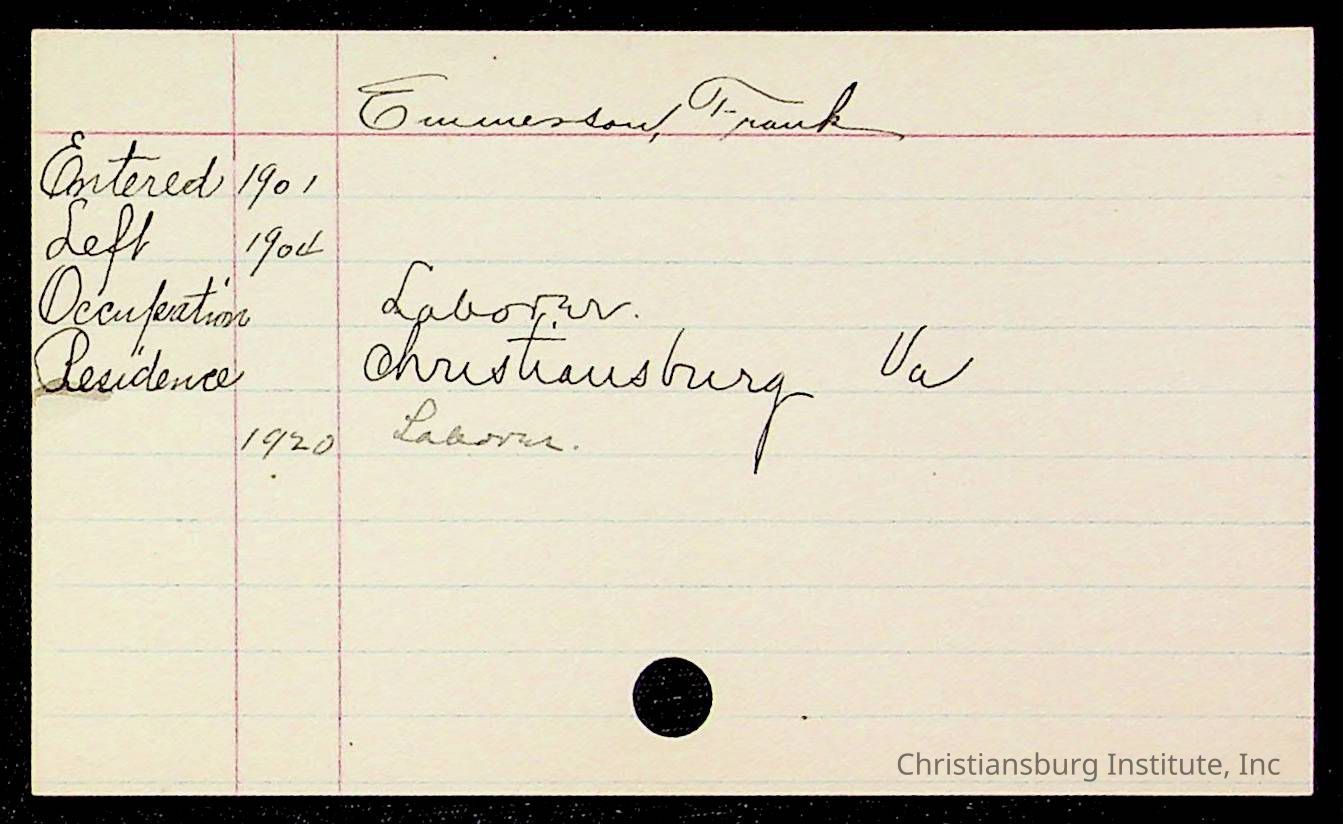 Emmerson, Frank
Entered 1901
Left 1904
Occupation Laborer.
Residence Christiansburg Va
1920 Laborer.
Christiansburg Institute, Inc